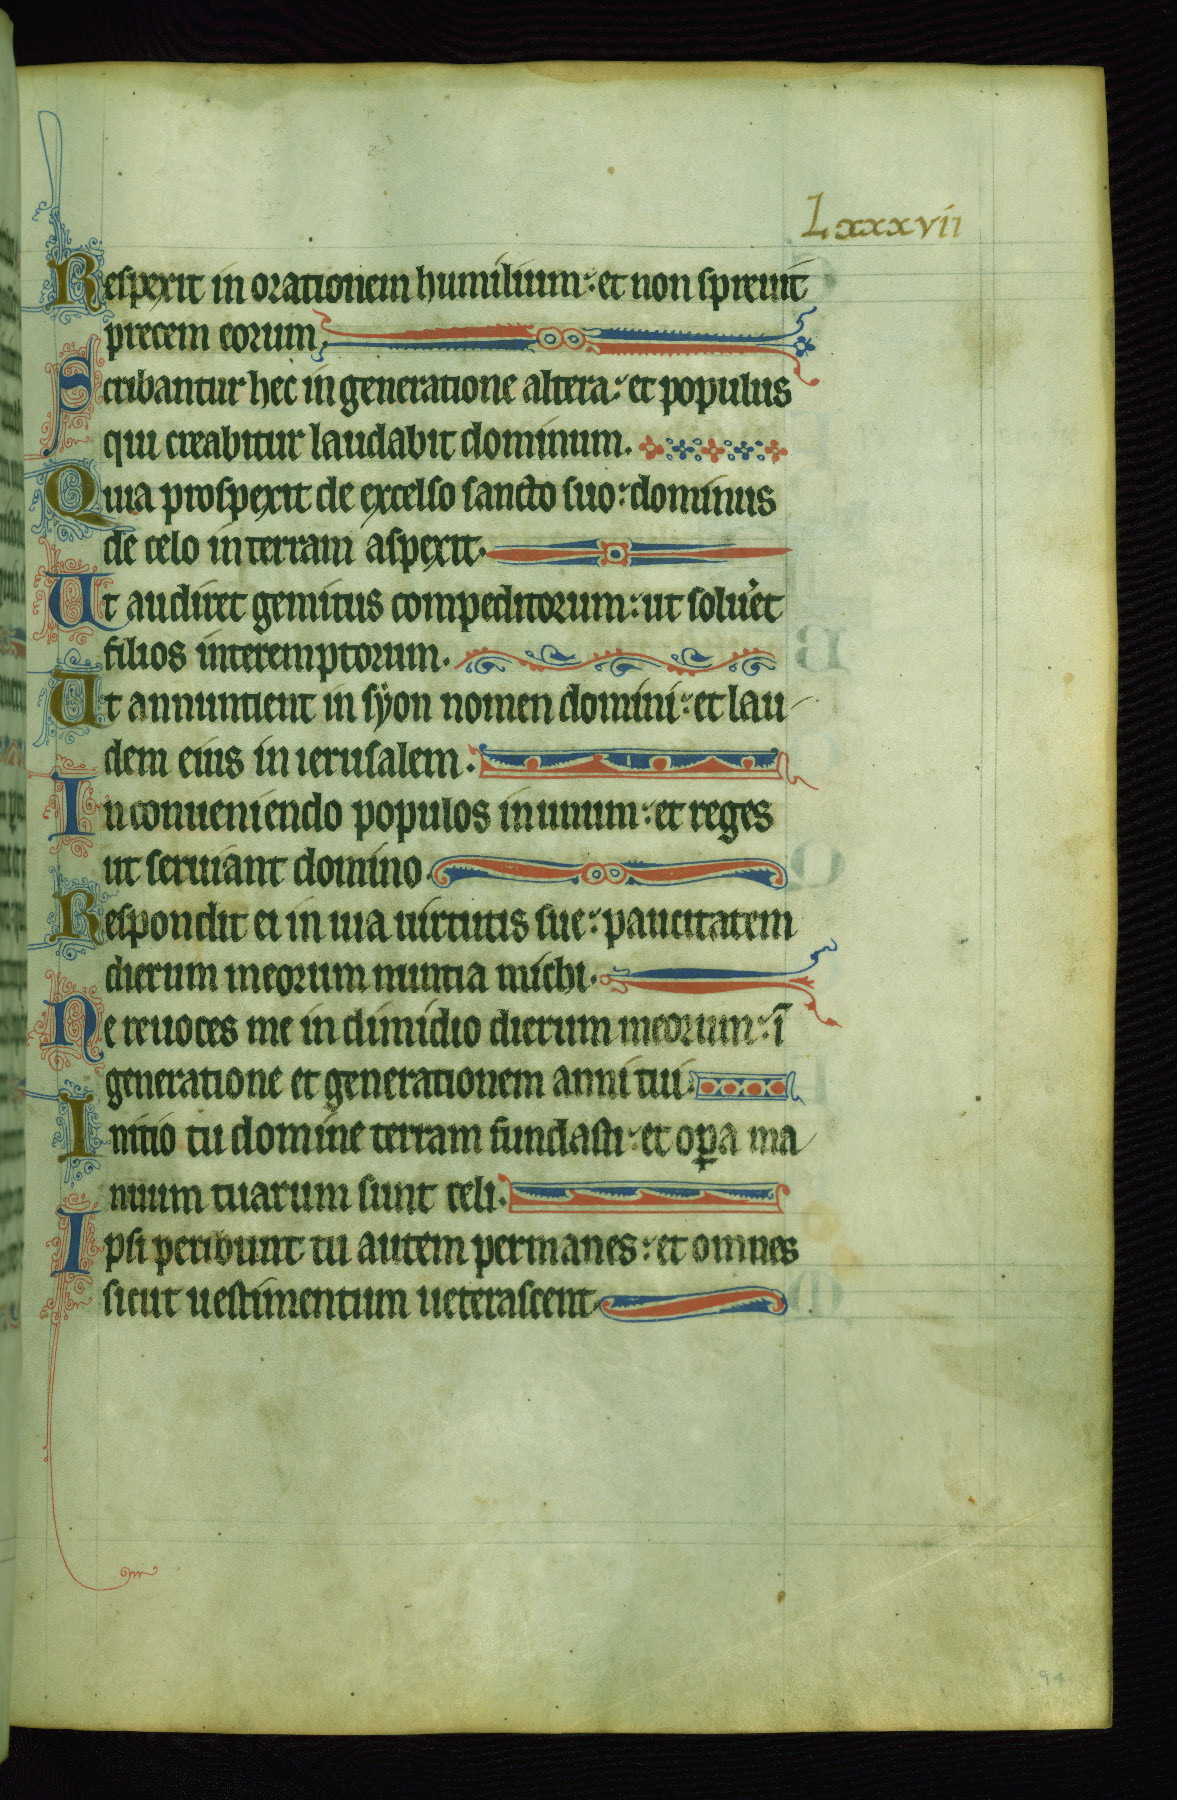 Lxxxvii
Respexit in orationem humilium: et non spreuit
precem eorum.
Scribantur hec in generatione altera: et populus
qui creabitur laudabit dominum.
Quia prospexit de excelso sancto suo: dominus
de celo in terram aspexit.
Ut audiret gemitus compeditorum: ut solu'et
filios interemptorum.
Ut annuntient in syon nomen domini: et lau
dem eius in ierusalem.
In conueniendo populos in unum: et reges
ut seruiant domino.
Respondit ei in uia uirtutis sue: paucitatem
dierum meorum nuntia michi.
Ne reuoces me in dimidio dierum meorum: ī
generatione et generationem anni tui.
Initio tu domine terram fundasti: et oꝑa ma
nuum tuarum sunt celi.
Ipsi peribunt tu autem permanes: et omnes
sicut uestimentum ueterascent.
94